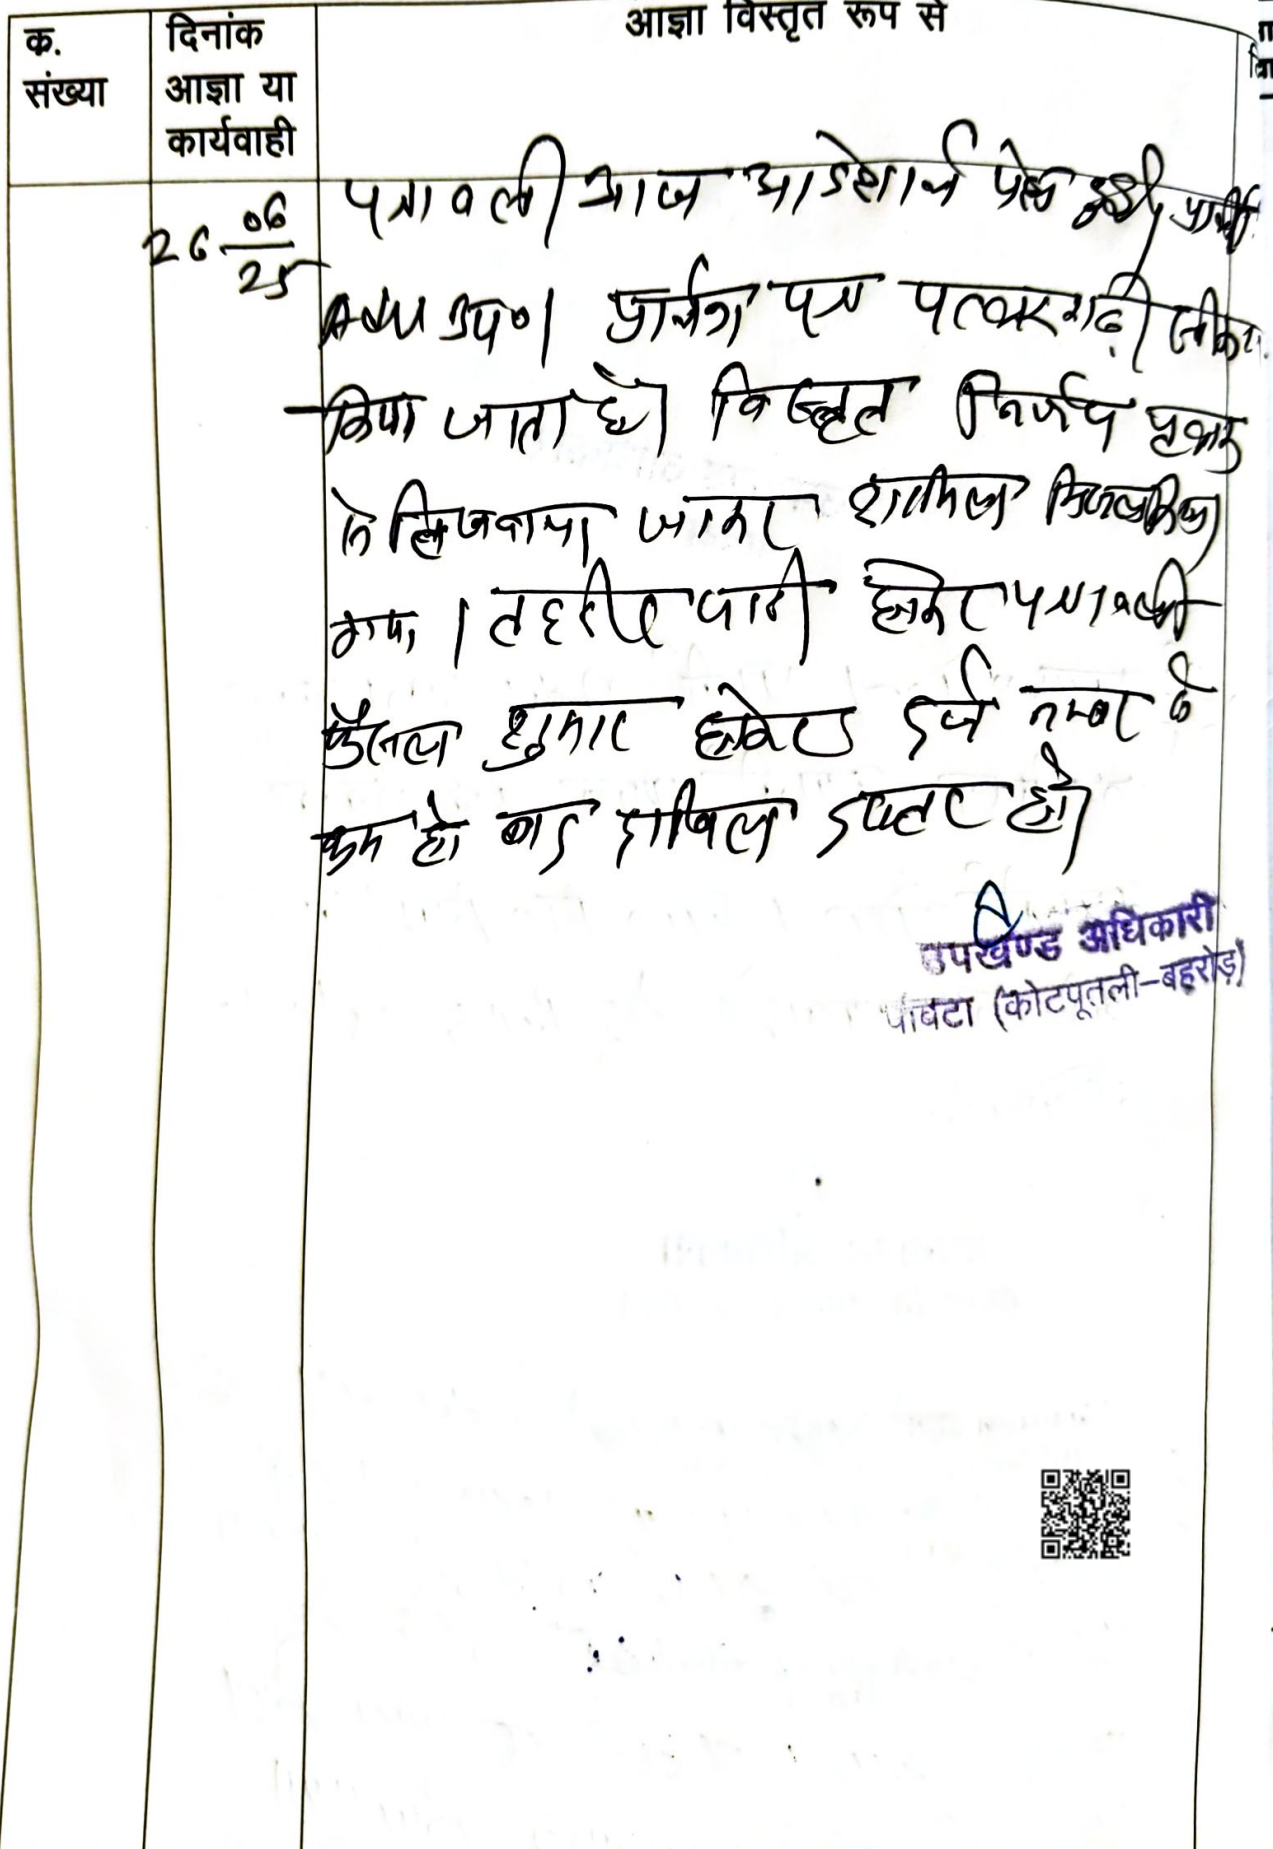 क्र. संख्या
दिनांक आज्ञा या कार्यवाही
आज्ञा विस्तृत रूप से
26 06/25
पत्रावली आज आदेशार्थ पेश हुई, प्रार्थी
उप०। प्रार्थना पत्र पत्थरगढ़ी स्वीकार
किया जाता है। विस्तृत निर्णय पृथक
से लिखवाया जाकर शामिल मिसल किया
गया। तहरीर जारी होकर पत्रावली
फैसल शुमार होकर दर्ज नम्बर से
कम हो बाद दाखिल दफ्तर हो।
उपखण्ड अधिकारी
पावटा (कोटपूतली-बहरोड़)